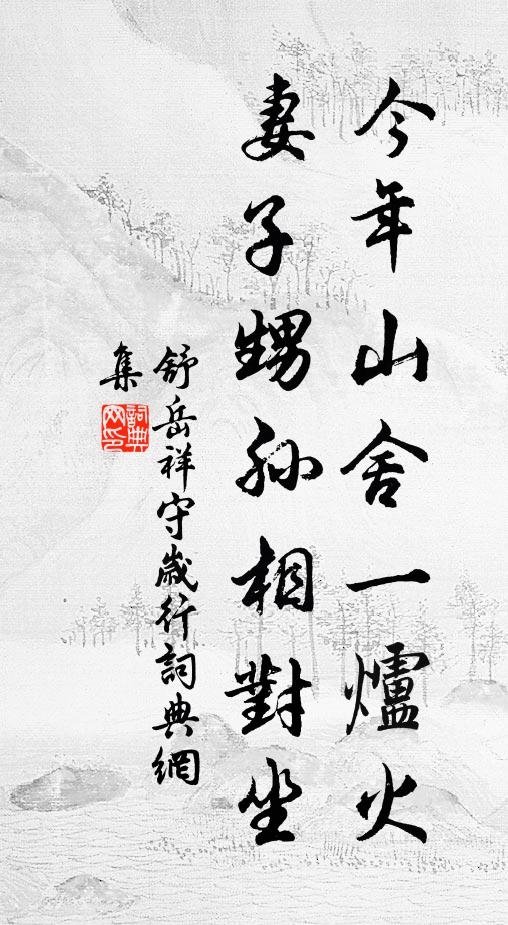 今年山舍一爐火
妻子甥孙相對坐
舒岳祥守歲行詞典網
集
詞典网印